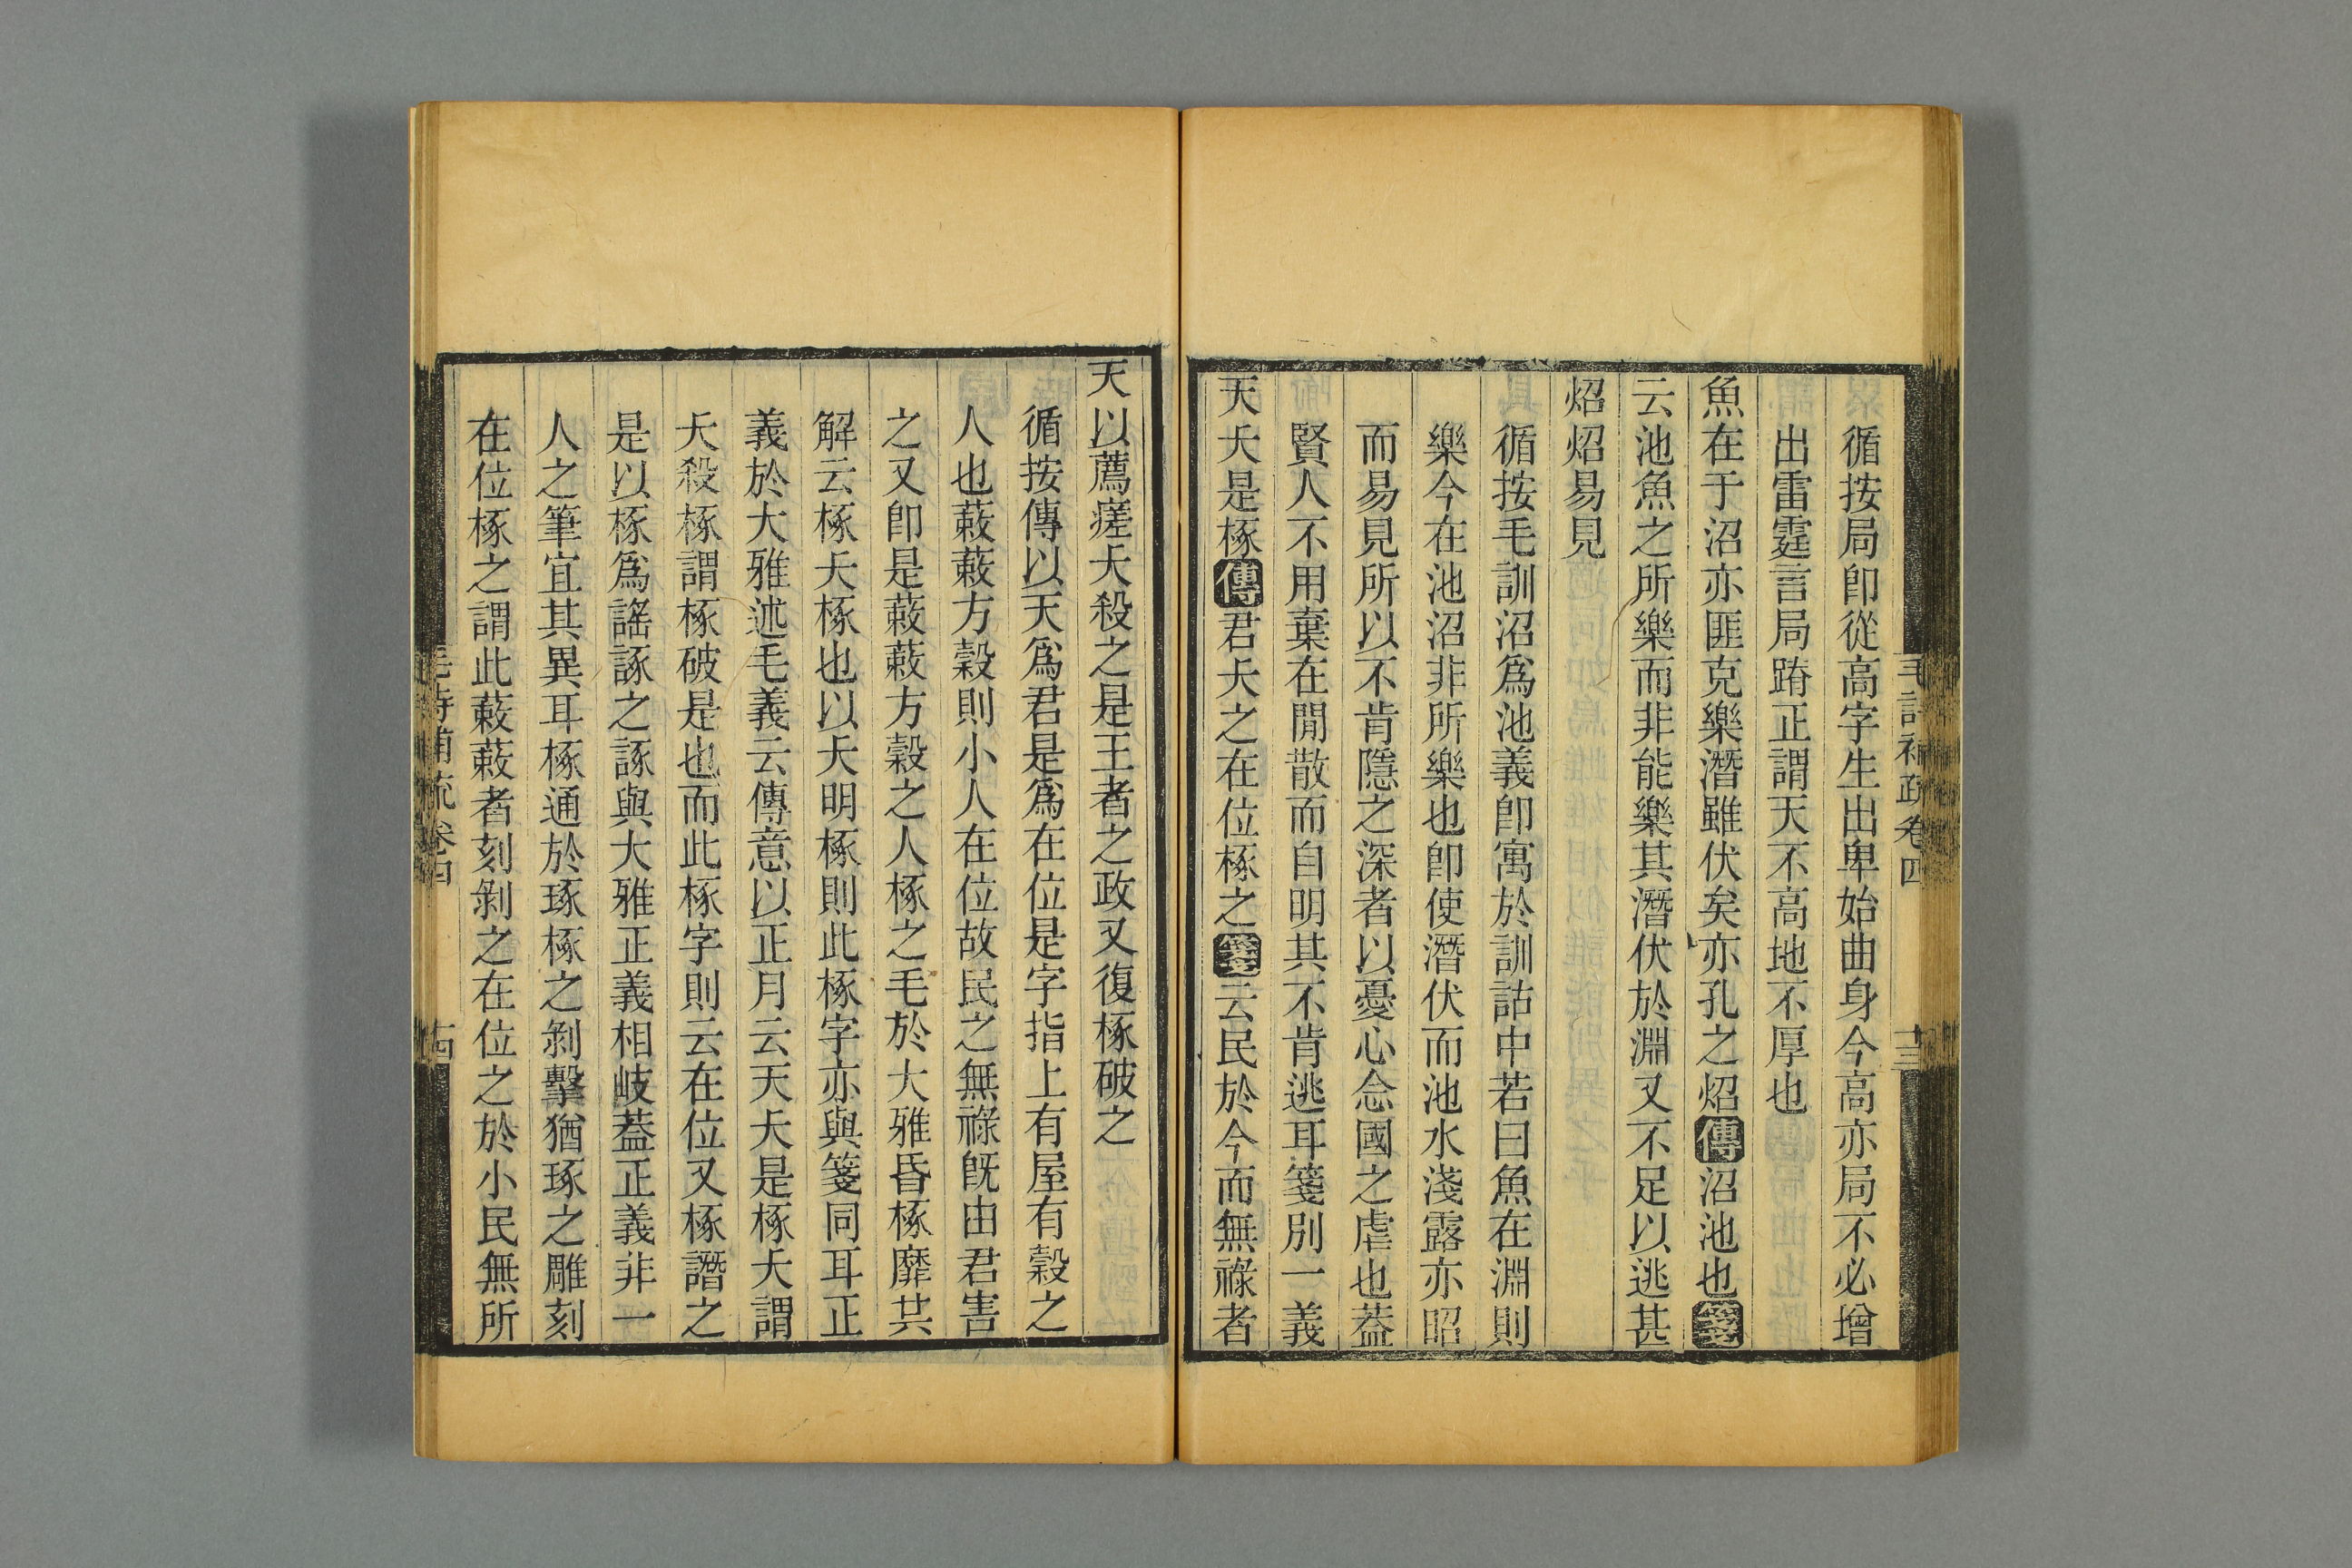 循按局卽從高字生出卑始曲身今高亦局不必增
出雷霆言局蹐正謂天不高地不厚也
魚在于沼亦匪克樂潛雖伏矣亦孔之炤傳沼池也箋
云池魚之所樂而非能樂其潛伏於淵又不足以逃甚
炤炤易見
循按毛訓沼爲池義卽寓於訓詁中若曰魚在淵則
樂今在池沼非所樂也卽使潛伏而池水淺露亦昭
而易見所以不肯隱之深者以憂心念國之虐也葢
賢人不用棄在閒散而自明其不肯逃耳箋別一義
天夭是椓傳君夭之在位椓之箋云民於今而無祿者
毛詩補疏卷四
十三
天以薦瘥夭殺之是王者之政又復椓破之
循按傳以天爲君是爲在位是字指上有屋有穀之
人也蔌蔌方穀則小人在位故民之無祿旣由君害
之又卽是蔌蔌方穀之人椓之毛於大雅昏椓靡共
解云椓夭椓也以夭明椓則此椓字亦與箋同耳正
義於大雅述毛義云傳意以正月云天夭是椓夭謂
夭殺椓謂椓破是也而此椓字則云在位又椓譖之
是以椓爲謠諑之諑與大雅正義相岐葢正義非一
人之筆宜其異耳椓通於琢椓之剝擊猶琢之雕刻
在位椓之謂此蔌蔌者刻剝之在位之於小民無所
毛詩補疏卷四
十四